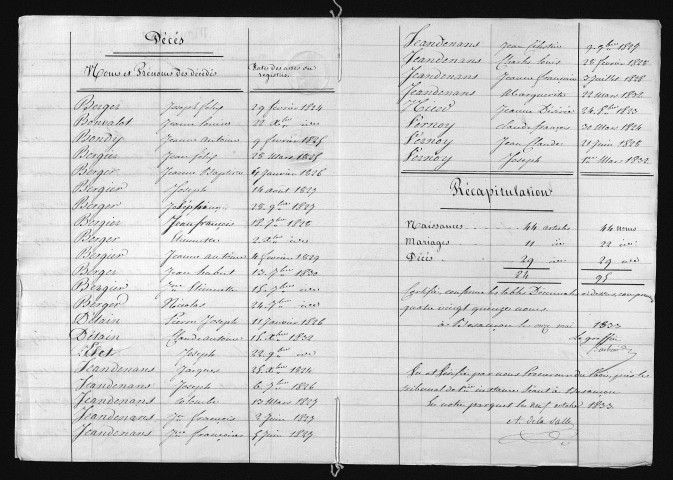 Décès
Noms et Prénoms des décédés Dates des actes du
registre
Berger Joseph felix 29 fevrier 1824
Bonvalot Jeanne louise 22 Xbre id
Bondy Jeanne antoine 9 fevrier 1825
Bergier Jean felix 28 Mars 1825
Berger Jeanne Baptiste 4 Janvier 1826
Bergier Joseph 14 avril 1827
Berger 28 9bre 1827
Bergier Jean francois 12 7bre 1828
Berger 2 Xbre id
Bergier Jeanne antoine 4 fevrier 1829
Berger Jean 13 7bre 1830
Bergier 18 7bre id
Berger Nicolas 24 7bre id
Détain Pierre Joseph 11 Janvier 1826
Détain Claude antoine 16 Xbre 1832
Joseph 22 9bre id
Jeandenans Jacques 25 Xbre 1824
Jeandenans Joseph 6 7bre 1826
Jeandenans Claude 13 Mars 1827
Jeandenans Jne françois 2 Juin 1827
Jeandenans Jne françoise 5 Juin 1827
Jeandenans Jean Célestin 9 9bre 1827
Jeandenans Charles louis 28 fevrier 1828
Jeandenans Jeanne françoise 3 Juillet 1828
Jeandenans Marguerite 22 Mars 1832
Jeanne 24 8bre 1823
Pernoy Claude françois 30 Mars 1824
Pernoy Jean Claude 21 Juin 1828
Pernoy Joseph 1er Mars 1832
Récapitulation
Naissances 44 articles 44 noms
Mariages 11 id 22 id
Décès 29 id 29 id
84 95
Certifiée conforme la table Décennale ci dessus, comprenant
quatre vingt quinze noms
a Besançon le onze mai 1833
Le greffier
Vu et Vérifié par nous Procureur du Roi, près le
tribunal de 1ère instance séant a Besançon
En notre parquet le neuf octobre 1833